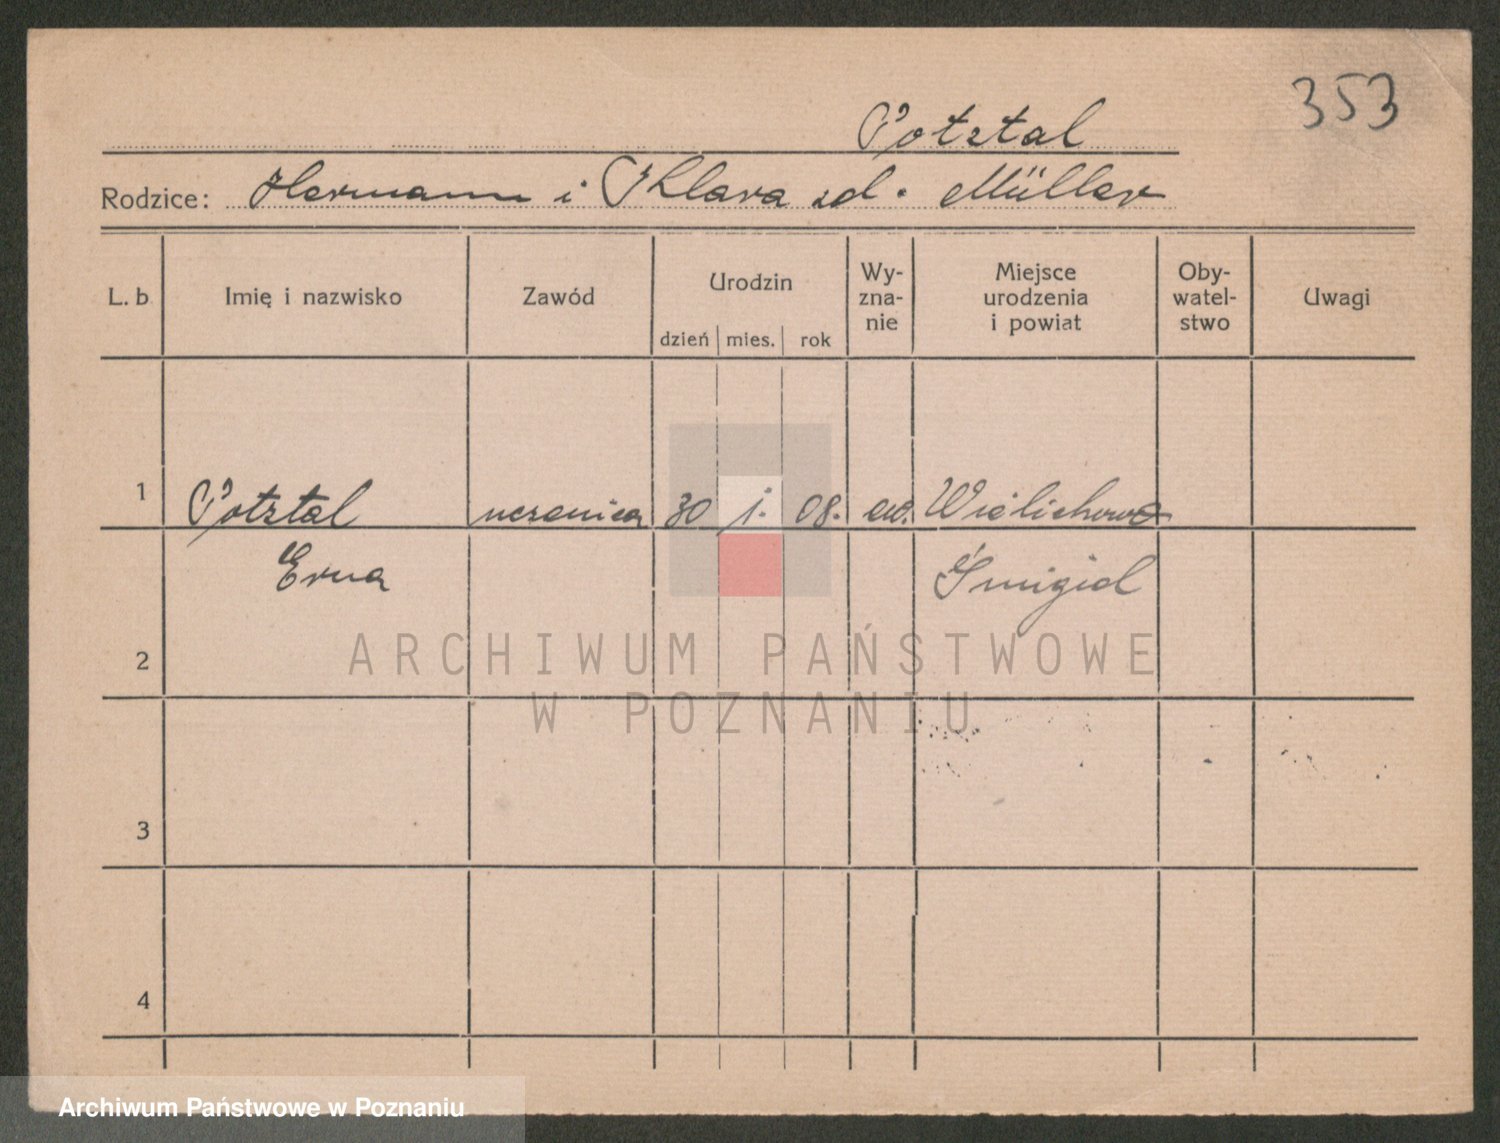 353
Potztal
Rodzice: Hermann i Klara zd. Müller
L. b Imię i nazwisko Zawód Urodzin dzień mies. rok Wy-zna-nie Miejsce urodzenia i powiat Oby-watel-stwo Uwagi
1 Potztal uczenica 30 1. 08. ew. Wielichowo
Erna Śmigiel
2
3
4
ARCHIWUM PAŃSTWOWE
W POZNANIU
Archiwum Państwowe w Poznaniu